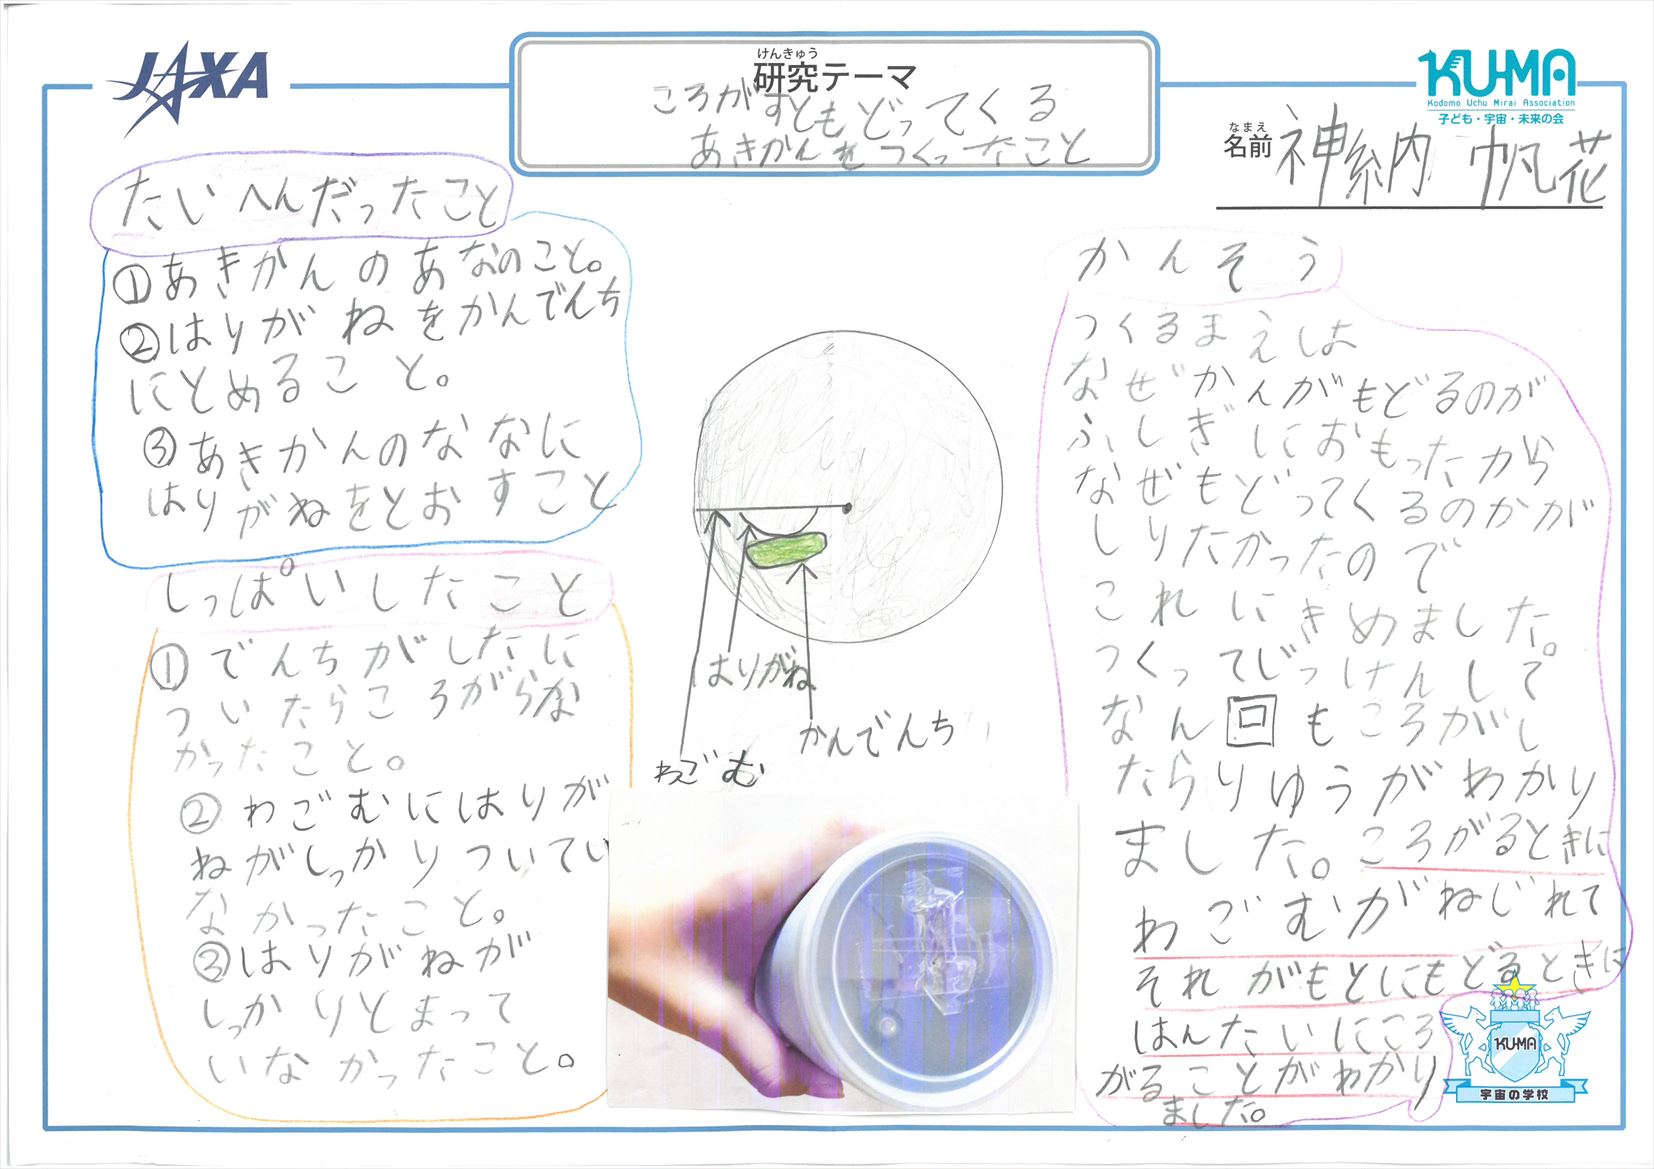 JAXA
けんきゅう
研究テーマ
ころがすともどってくる
あきかんをつくったこと
KU-MA
Kodomo Uchu Mirai Association
子ども・宇宙・未来の会
なまえ
名前 神納 帆花
たいへんだったこと
①あきかんのあなのこと。
②はりがねをかんでんち
にとめること。
③あきかんのななに
はりがねをとおすこと
しっぱいしたこと
①でんちがしたに
ついたらころがらな
かったこと。
②わごむにはりが
ねがしっかりついてい
なかったこと。
③はりがねが
しっかりとまって
いなかったこと。
はりがね
かんでんち
わごむ
かんそう
つくるまえは
なぜかんがもどるのが
ふしぎにおもったから
なぜもどってくるのかが
しりたかったので
これにきめました。
つくってじっけんして
なん回もころがし
たらりゆうがわかり
ました。ころがるときに
わごむがねじれて
それがもとにもどるときに
はんたいにころ
がることがわかり
ました。
KU-MA
宇宙の学校